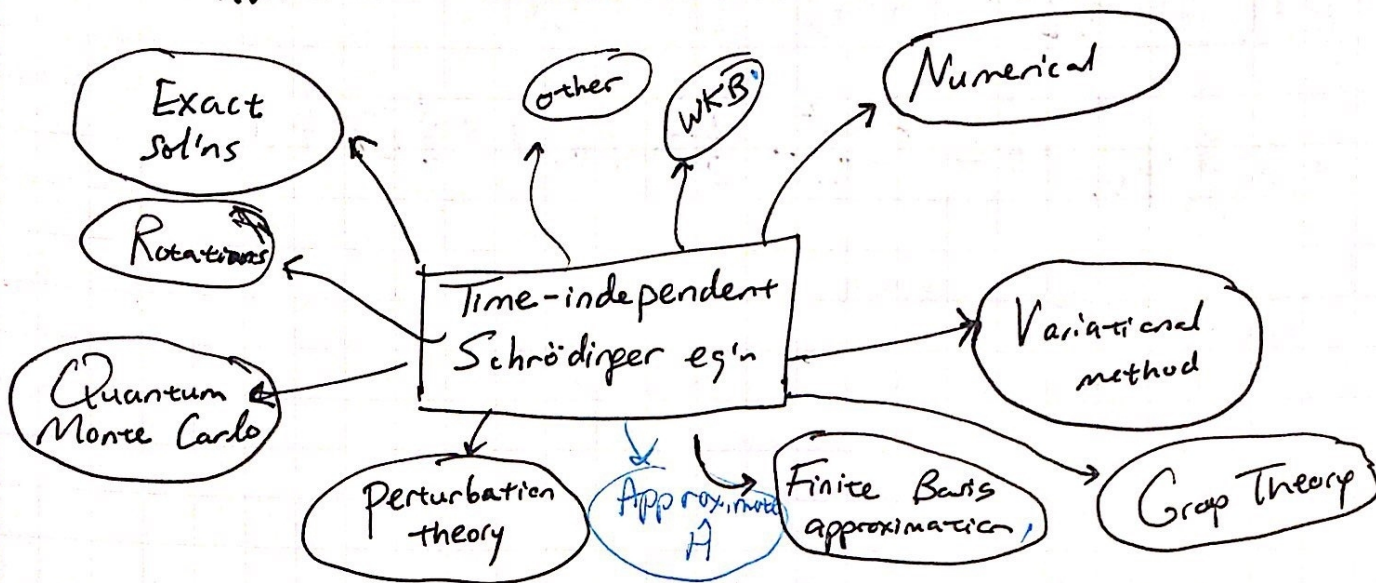 Exact
sol'ns
other
WKB
Numerical
Rotations
Time-independent
Schrödinger eq'n
Variational
method
Quantum
Monte Carlo
Perturbation
theory
Approximate
Ĥ
Finite Basis
approximation
Group Theory